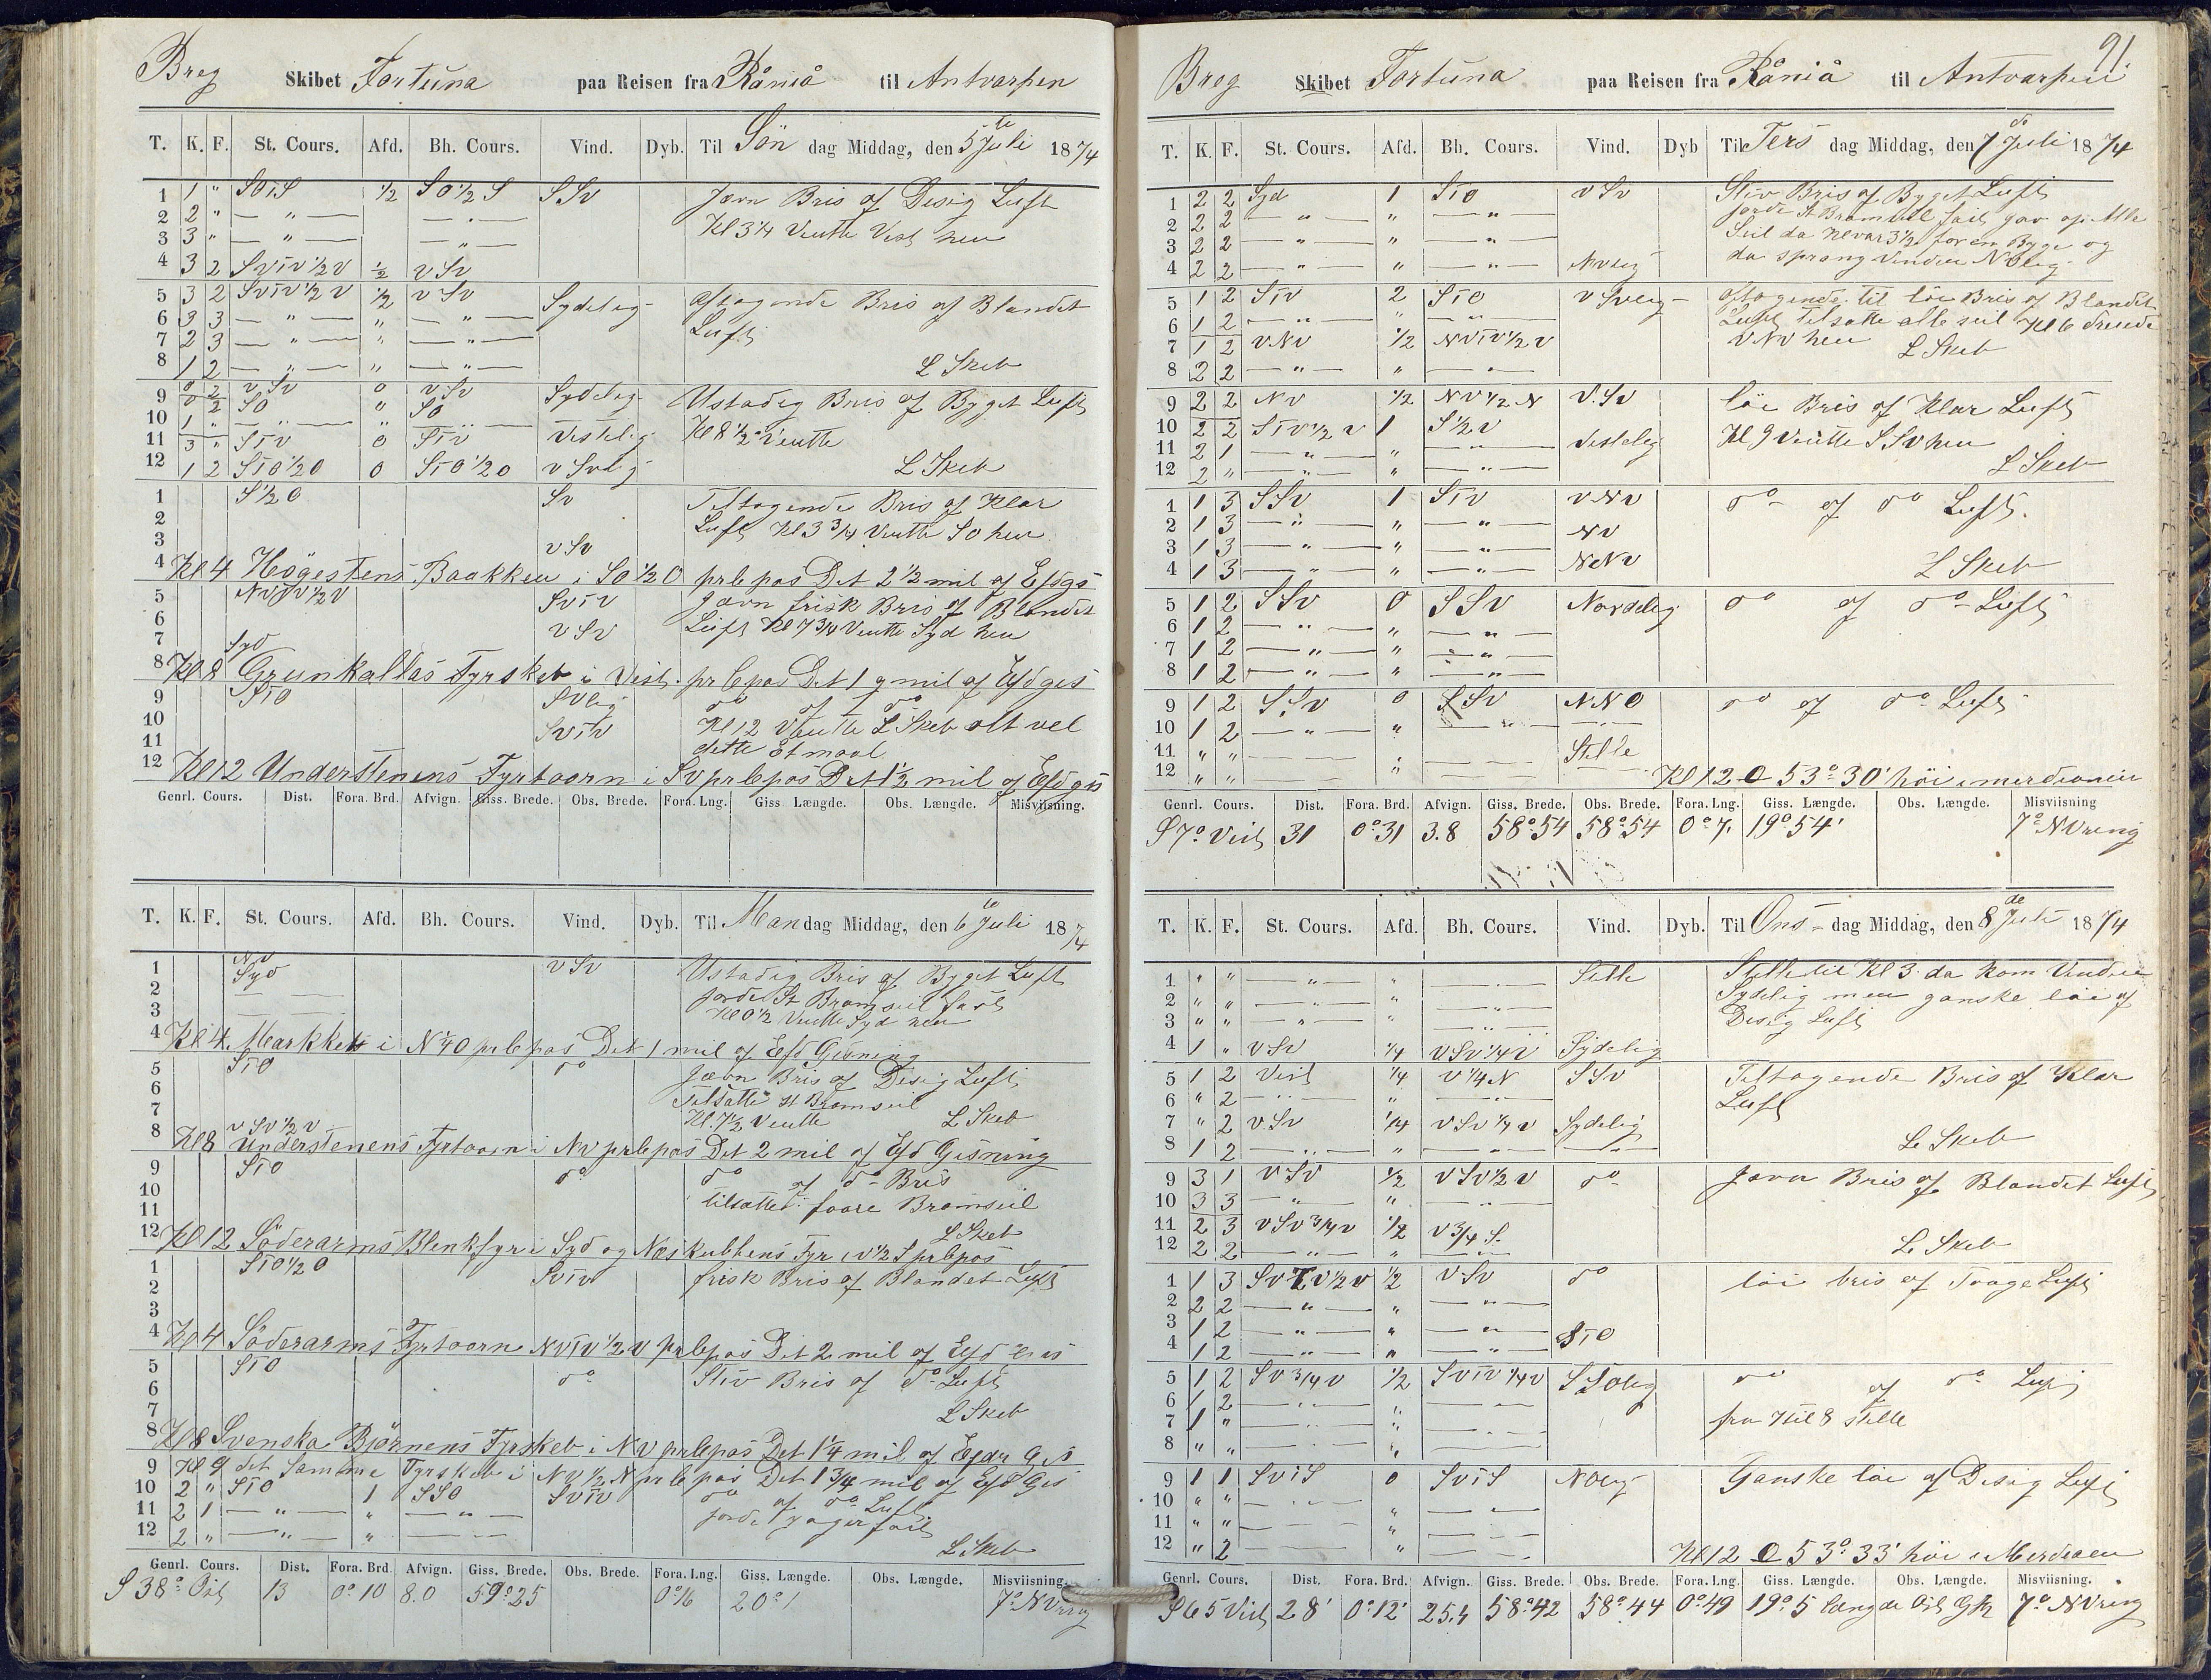 Breg Skibet Fortuna paa Reisen fra Råniå til Antvarpen
T. K. F. St. Cours. Afd. Bh. Cours. Vind. Dyb. Til Søn dag Middag, den 5te Juli 1874
1 1 " SOiS 1/2 SO 1/2 S SSv Jævn Bris af Disig Luft
2 2 " — " — — " — Kl 3 1/4 Ventte Vest hen
3 3 " — " — — " —
4 3 2 SViV 1/2 V 1/2 v Sv
5 3 2 SViV 1/2 V 1/2 v Sv Sydelig Aftagende Bris af Blandet
6 3 3 — " — " — " — Luft
7 2 3 — " — " — " —
8 1 2 — " — " — " — L Skeb
9 0 2 v Sv 0 v Sv Sydelig Ustadig Bris af Byget Luft
0 2 SO " SO
10 1 " — " — " — " — Kl 8 1/2 Ventte
11 3 " SiV 0 SiV Vestelig
12 1 2 SiO 1/2 O 0 SiO 1/2 O v Svlig L Skeb
1 S 1/2 O Sv Teltagende Bris af Klar
2 Luft Kl 3 3/4 Ventte So hen
3 v Sv
4 Kl 4 Høgestens Baakken i SO 1/2 O prlepas Det 2 1/2 mil af Efdgs
5 NViV 1/2 V SviV Jævn frisk Bris af Blandet
6 v Sv Luft Kl 7 3/4 Ventte Syd hen
7 Syd
8 Kl 8 Grunkallas Fyrskeb i Vest prlepas Det 1 q mil af Efdgis
9 SiO SVlig do af do
10 SviV Kl 12 Ventte L Skeb alt vel
11 dette Etmaal
12 Kl 12 Understenens Fyrtaarn i Sv prlepas Det 1 1/2 mil af Efdgis
Genrl. Cours. Dist. Fora. Brd. Afvign. Giss. Brede. Obs. Brede. Fora. Lng. Giss. Længde. Obs. Længde. Misviisning.
T. K. F. St. Cours. Afd. Bh. Cours. Vind. Dyb. Til Man dag Middag, den 6te Juli 1874
Nv
1 Syd v Sv Ustadig Bris af Byget Luft
2 — — jorde St Bramseil fast
3 — — Kl 0 1/2 Ventte Syd hen
4 Kl 4 Markket i N 1/4 O prlepas Det 1 mil af Efd Gisning
5 SiO do Jævn Bris af Disig Luft
6 Tilsatte St Bramseil
7 Kl. 7 1/2 Ventte L Skeb
8 v Sv 1/2 v
Kl 8 Understenens Fyrtaarn i Nv prlepas Det 2 mil af Efd Gisning
9 SiO do do af do Bris
10 tilsatte faare Bramseil
11 L Skeb
12 Kl 12 Søderarms Blenkfyr i Syd og Næskubbens Fyr i V 1/2 S prlepas
1 SiO 1/2 O SviV frisk Bris af Blandet Luft
2
3
4 Kl 4 Søderarms Fyrtaarn NViV 1/2 V prlepas Det 2 mil af Efd Gis
5 SiO do Stiv Bris af do Luft
6
7 L Skeb
8 Kl 8 Svenska Bjørnens Fyrskeb i NV prlepas Det 1 1/4 mil af Efdr Gis
9 Kl 9 det Samme Fyrskeb i NV 1/2 N prlepas Det 1 3/4 mil af Efd Gis
10 2 " SiO 1 SSO SviV do af do Luft
11 2 1 — " — " — " — jorde Jager fast
12 2 " — " — " — — L Skeb
Genrl. Cours. Dist. Fora. Brd. Afvign. Giss. Brede. Obs. Brede. Fora. Lng. Giss. Længde. Obs. Længde. Misviisning.
S 38° Ost 13 0° 10 8.0 59° 25 0° 16 20° 1 7° NVring
91.
Breg Skibet Fortuna paa Reisen fra Råniå til Antvarpen
T. K. F. St. Cours. Afd. Bh. Cours. Vind. Dyb Til Ters dag Middag, den 7de Juli 1874
1 2 2 Syd 1 SiO v Sv Stiv Bris af Byget Luft
2 2 2 — " — " — " — jorde St Bramseil fast, gav op Alle
3 2 2 — " — " — " — Seil da Kl var 3 1/2 for en Byge og
4 2 2 — " — " — " — Nvlig da sprang Vinden NOlig
5 1 2 SiV 2 SiO v Svlig Aftagende til løi Bris af Blandet
6 1 2 — " — " — " — Luft Tilsatte alle seil Kl 6
7 1 2 vNv 1/2 NViV 1/2 V VNV hen
8 2 2 — " — " — " — L Skeb
9 2 2 Nv 1/2 NV 1/2 N V.Sv løi Bris af Klar Luft
10 2 2 SiV 1/2 v 1 S 1/2 v Kl 9 Ventte SSv hen
11 2 1 — " — " — " — Vestelig
12 2 " — " — " — " — L Skeb
1 1 3 SSv 1 SiV vNv do af do Luft.
2 1 3 — " — " — " — Nv
3 1 3 — " — " — " —
4 1 3 — " — " — " — NNv L Skeb
5 1 2 SSv 0 SSv Nordelig do af do Luft
6 1 2 — " — " — " —
7 1 2 — " — " — " —
8 1 2 — " — " — " —
9 1 2 SSv 0 SSv NNO do af do Luft
10 1 2 — " — " — " — — " —
11 " " — — — — Stille
12 " " — — " — — Kl 12 O 53° 30' høi i merdionen
Genrl. Cours. Dist. Fora. Brd. Afvign. Giss. Brede. Obs. Brede. Fora. Lng. Giss. Længde. Obs. Længde. Misviisning
S 7° Vest 31 0° 31 3.8 58° 54 58° 54 0° 7. 19° 54' 7° NVring
T. K. F. St. Cours. Afd. Bh. Cours. Vind. Dyb. Til Ons- dag Middag, den 8de Juli 1874
1 " " — " — " — " — Stille Stille til Kl 3 da kom Vinden
2 " " — " — " — " — Sydelig men ganske løi af
3 " " — " — " — " — Disig Luft
4 1 " v Sv 1/4 VSv 1/4 V Sydelig
5 1 2 Vest 1/4 V 1/4 N SSv Teltagende Bris af Klar
6 " 2 — " — " — " — Luft
7 " 2 v Sv 1/4 v Sv 1/4 v Sydelig
8 1 2 — " — " — " — — " — L Skeb
9 3 1 v Sv 1/2 v Sv 1/2 v do Jævn Bris af Blandet Luft
10 3 3 — " — " — " —
11 2 3 v Sv 3/4 v 1/2 V 3/4 S.
12 2 2 — " — " — " — L Skeb
1 1 3 SviV 1/2 v 1/2 v Sv do løi bris af Taage Luft
2 2 2 — " — " — " —
3 1 2 — " — " — " —
4 1 2 — " — " — " — SiO
5 1 2 Sv 3/4 v 1/2 SViV 1/4 V SSOlig do af do Luft
6 1 2 — " — " — " —
7 1 " — " — " — " — fra 7 til 8 Stille
8 " " — " — " — " —
9 1 1 SViS 0 SViS NOlig Ganske løi af Disig Luft
10 " " — " — " — " —
11 " " — — " — —
12 " 2 — — " — — Kl 12 O 53° 33' høi i Merdeaen
Genrl. Cours. Dist. Fora. Brd. Afvign. Giss. Brede. Obs. Brede. Fora. Lng. Giss. Længde. Obs. Længde. Misviisning.
S 65 Vest 28' 0° 12' 25.4 58° 42 58° 44 0° 49 19° 5 længde Ost G 7° NVring